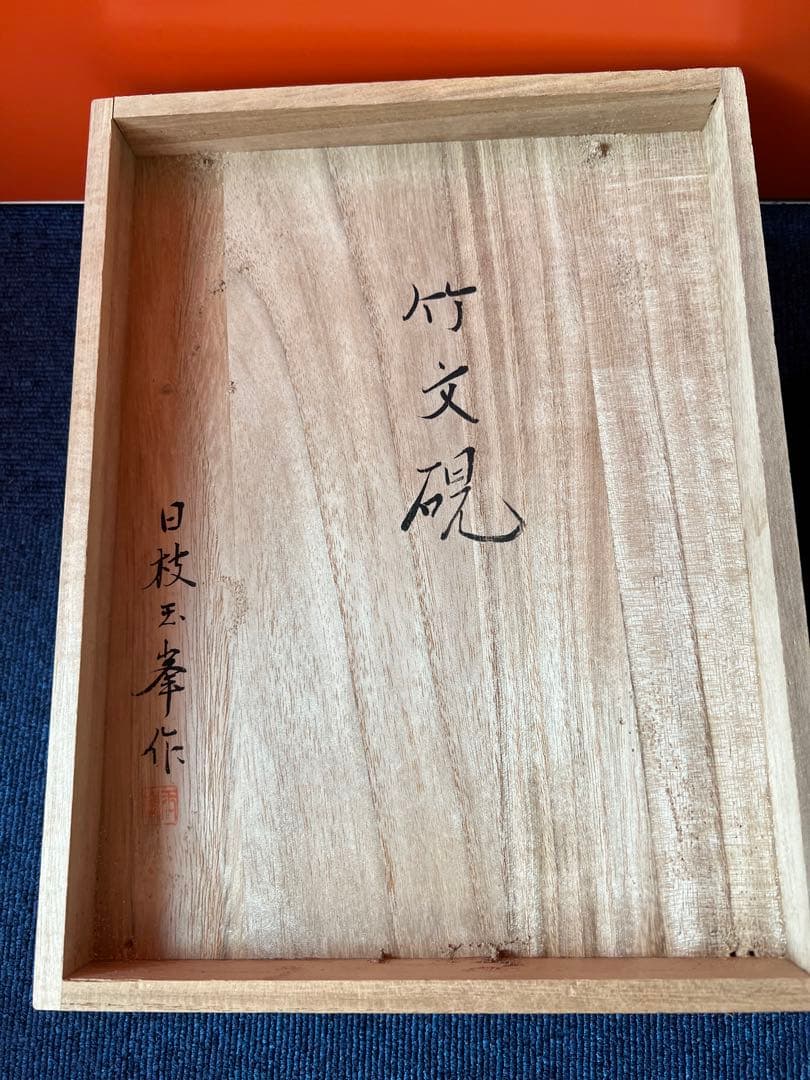 竹文硯
日枝玉峯作